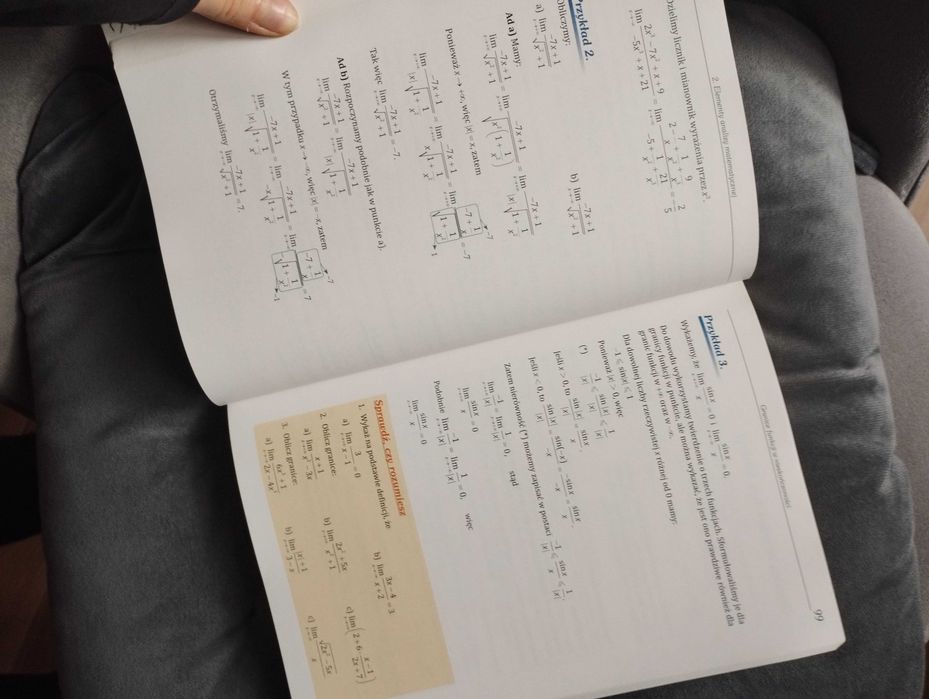 2. Elementy analizy matematycznej
Dzielimy licznik i mianownik wyrażenia przez x³.
lim (2x³ − 7x² + x + 9)/(−5x³ + x + 21) = lim (2 − 7/x + 1/x² + 9/x³)/(−5 + 1/x² + 21/x³) = − 2/5
Przykład 2.
Obliczymy:
a) lim (−7x + 1)/√(x² + 1) b) lim (−7x + 1)/√(x² + 1)
Ad a) Mamy:
lim (−7x + 1)/√(x² + 1) = lim (−7x + 1)/√(x²(1 + 1/x²)) = lim (−7x + 1)/(|x|√(1 + 1/x²))
Ponieważ x → +∞, więc |x| = x, zatem
lim (−7x + 1)/(|x|√(1 + 1/x²)) = lim (−7x + 1)/(x√(1 + 1/x²)) = lim (−7 + 1/x)/√(1 + 1/x²) = −7
−7
1
Tak więc lim (−7x + 1)/√(x² + 1) = −7.
Ad b) Rozpoczynamy podobnie jak w punkcie a).
lim (−7x + 1)/√(x² + 1) = lim (−7x + 1)/(|x|√(1 + 1/x²))
W tym przypadku x → −∞, więc |x| = −x, zatem
lim (−7x + 1)/(|x|√(1 + 1/x²)) = lim (−7x + 1)/(−x√(1 + 1/x²)) = lim (−7 + 1/x)/(−√(1 + 1/x²)) = 7
−7
−1
Otrzymaliśmy lim (−7x + 1)/√(x² + 1) = 7.
Granice funkcji w nieskończoności
99
Przykład 3.
Wykażemy, że lim sinx/x = 0 i lim sinx/x = 0.
Do dowodu wykorzystamy twierdzenie o trzech funkcjach. Sformułowaliśmy je dla
granicy funkcji w punkcie, ale można wykazać, że jest ono prawdziwe również dla
granic funkcji w +∞ oraz w −∞.
Dla dowolnej liczby rzeczywistej x różnej od 0 mamy:
−1 ⩽ sinx ⩽ 1
Ponieważ |x| > 0, więc
(*) −1/|x| ⩽ sin x/|x| ⩽ 1/|x|
Jeśli x > 0, to sin x/|x| = sin x/x.
Jeśli x < 0, to sin x/|x| = sin(−x)/−x = −sin x/−x = sin x/x.
Zatem nierówność (*) możemy zapisać w postaci −1/|x| ⩽ sin x/x ⩽ 1/|x|.
lim −1/|x| = lim 1/|x| = 0, stąd
lim sinx/x = 0
Podobnie lim −1/|x| = lim 1/|x| = 0, więc
lim sinx/x = 0
Sprawdź, czy rozumiesz
1. Wykaż na podstawie definicji, że
a) lim 3/(x − 1) = 0 b) lim (3x − 4)/(x + 2) = 3
2. Oblicz granice:
a) lim (x + 1)/(x² − 3x) b) lim (2x² + 5x)/(x² + 1) c) lim (2 + 6 · (x − 1)/(2x + 7))
3. Oblicz granice:
b) lim (|x| + 1)/(2 − x) c) lim √(2x² − 5x)/x